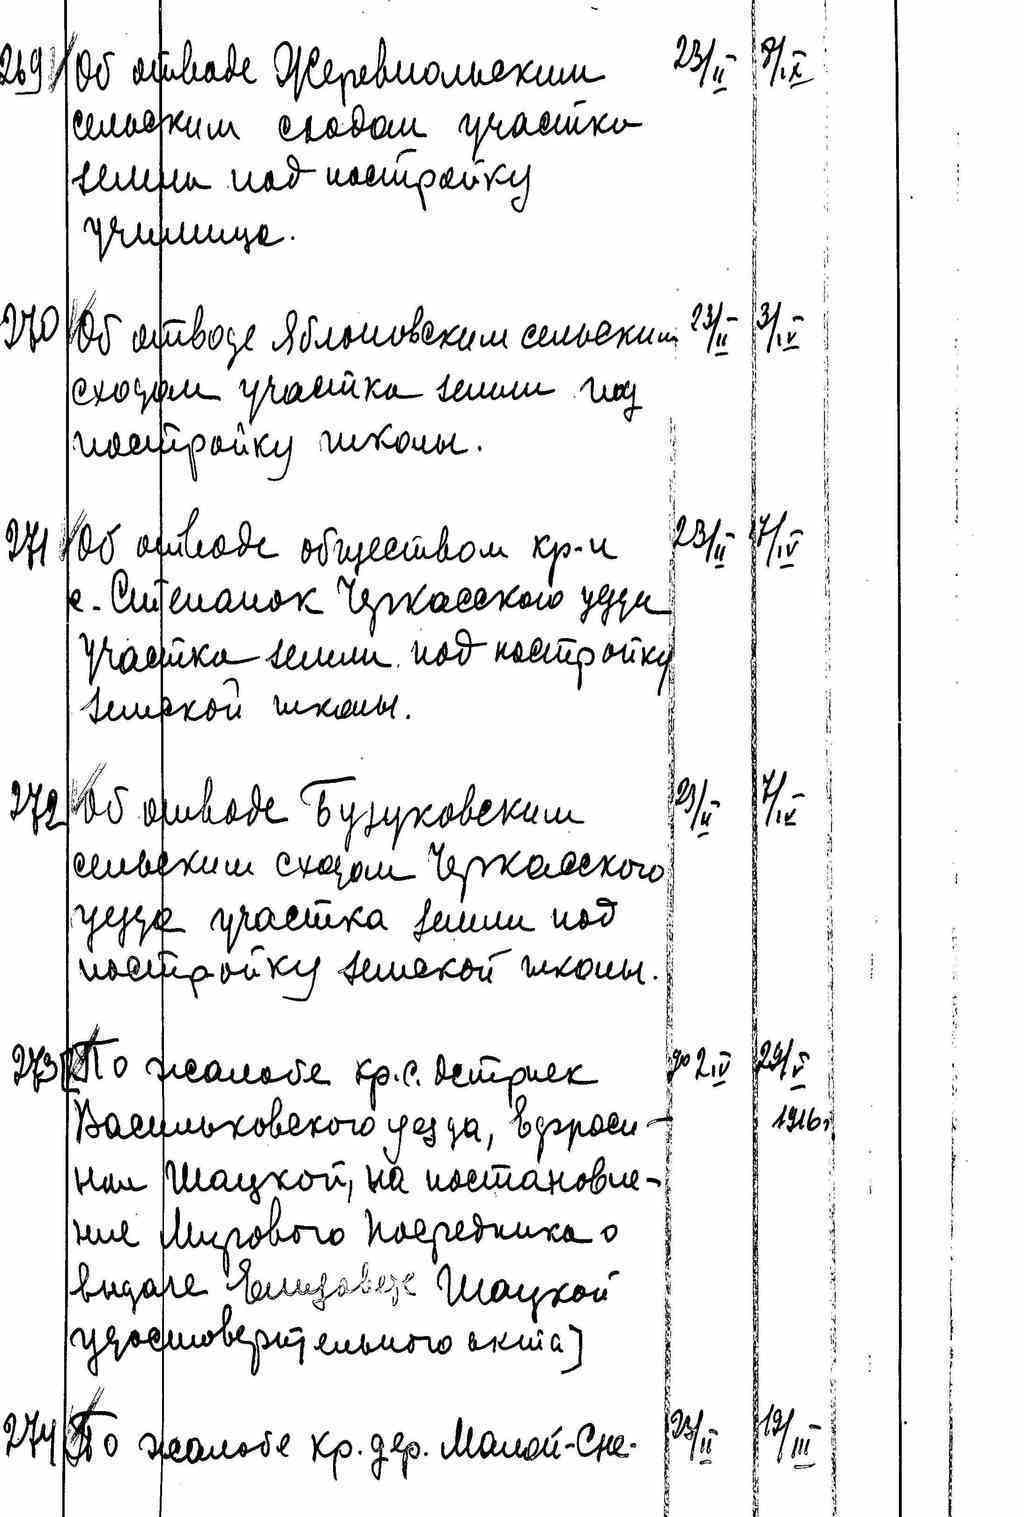 269 Об отводе Жеревпольским 23/II 8/IX
сельским сходом участка
земли под постройку
училища.
270 Об отводе Яблоновским сельским 23/II 3/IV
сходом участка земли под
постройку школы.
271 Об отводе обществом кр-н 23/II 7/IV
с. Степанок Черкасского уезда
участка земли под постройку
земской школы.
272 Об отводе Бузуковским 23/II 7/IV
сельским сходом Черкасского
уезда участка земли под
постройку земской школы.
273 [По жалобе кр. с. Острiек до 2.IV 29/V
Васильковского уезда, Ефроси- 1916г
нии Шацкой, на постановле-
ние Мирового Посредника о
выдаче Елизавете Шацкой
удостоверительного акта]
274 По жалобе кр. дер. Малой-Сне- 23/II 19/III